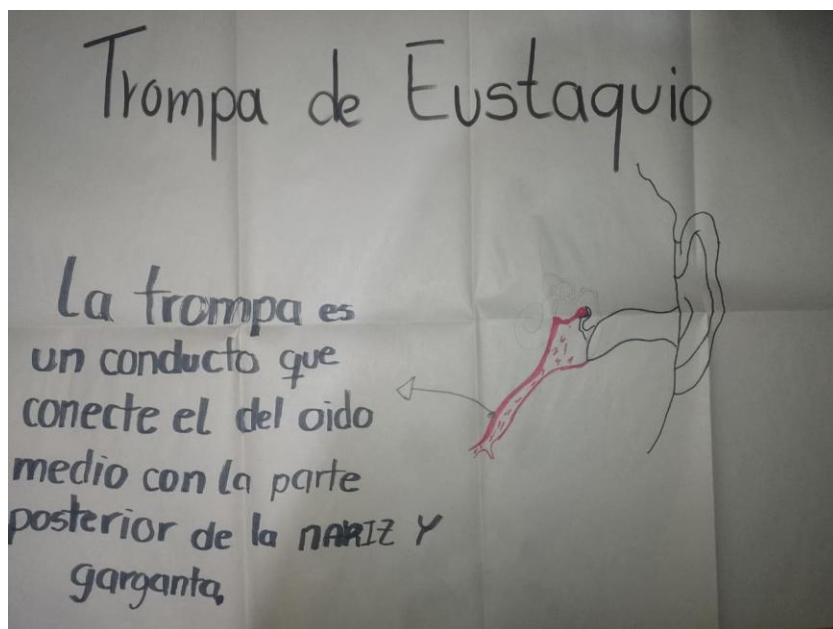 Trompa de Eustaquio
La trompa es
un conducto que
conecte el del oido
medio con la parte
posterior de la NARIZ Y
garganta.